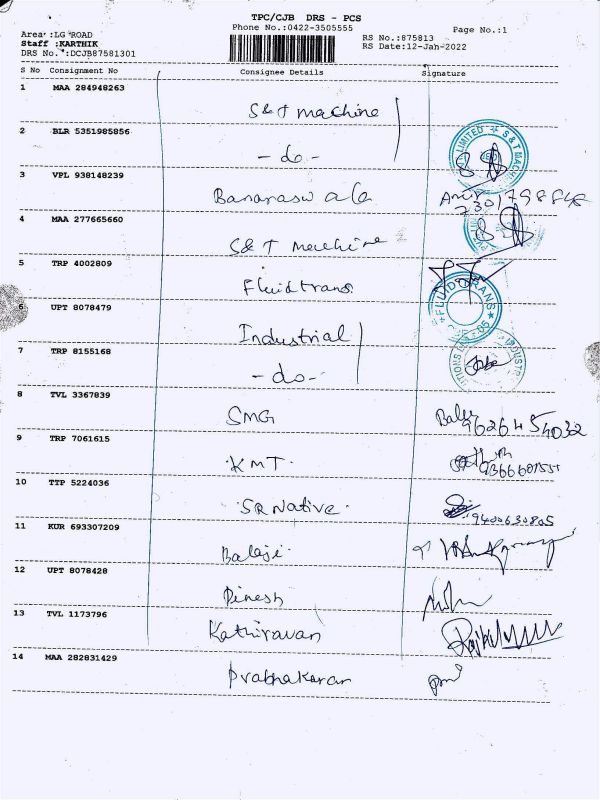 TPC/CJB DRS - PCS
Phone No.:0422-3505555
Page No.:1
Area :LG ROAD
Staff :KARTHIK
DRS No. :DCJB87581301
RS No.:875813
RS Date:12-Jan-2022
S No Consignment No Consignee Details Signature
1 MAA 284948263 S&T machine
2 BLR 5351985856 - do -
3 VPL 938148239 Banaraswala 7301798848
4 MAA 277665660 S&T Mechine
5 TRP 4002809 Fluidtrans
FLUIDTRANS
6 UPT 8078479 Industrial
7 TRP 8155168 - do -
8 TVL 3367839 SMG 9626454032
9 TRP 7061615 KMT
10 TTP 5224036 SR Native 9400630805
11 KUR 693307209 Balaji
12 UPT 8078428 Dinesh
13 TVL 1173796 Kathiravan
14 MAA 282831429 Prabhakaran